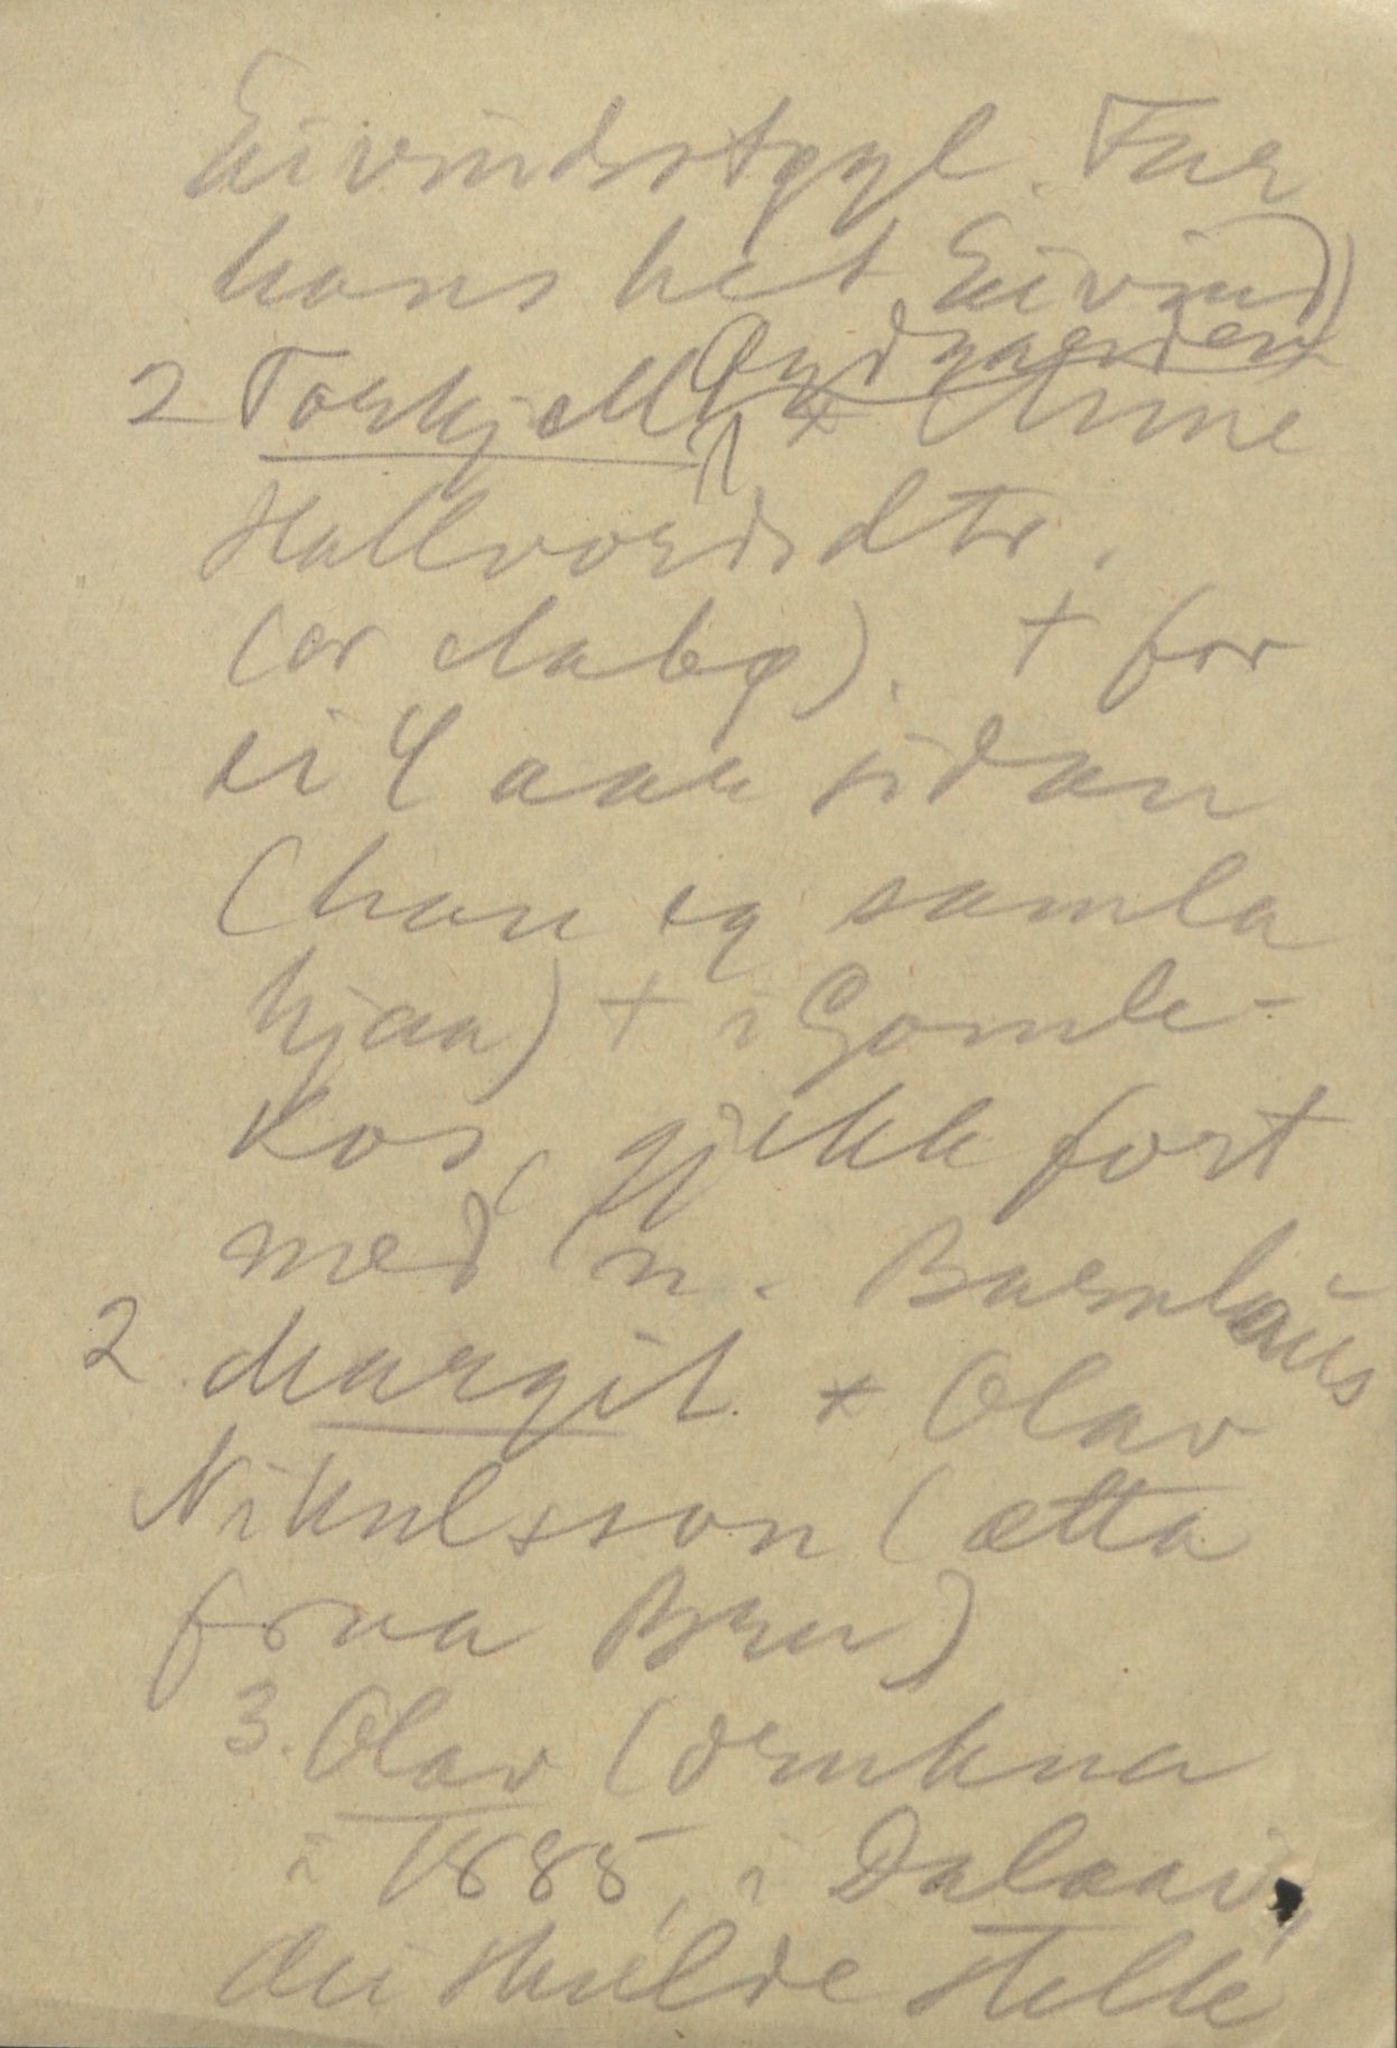 Eivindstygl. Far
hans het Eivind)
Nydgaarden
2 Torkjell * Anne
Hallvordsdtr.
(or Aabø). + for
ei 4 aar sidan
(han eg samla
hjaa) + i Gamle-
Kos, gjekk fort
med 'n. Barnlaus
2. Margit * Olav
Nikulsson (ætta
fraa Bru)
3. Olav (drukna
i 1885, i Dalaai,
dei skulde stelle